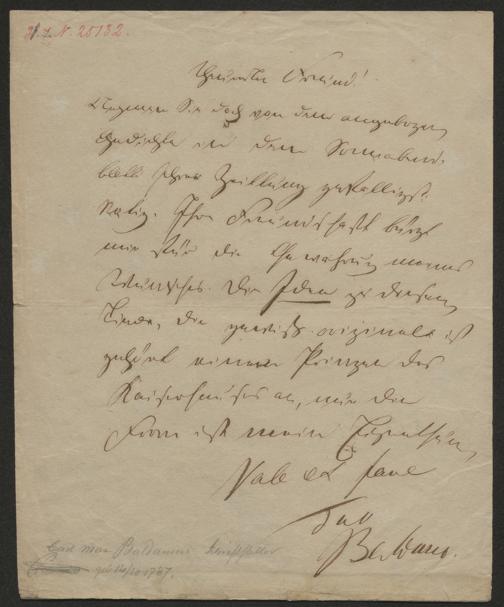 I. N. 25132.
Theurster Freund!
Nehmen Sie doch von dem angebogenen
Gedichte in dem Sonnabend-
blatt Ihrer Zeitung gefälligst
Notiz. Ihre Freundschaft bürgt
mir für die Gewährung meines
Wunsches. Die Idee zu diesem
Liede, die gewiß originell ist
gehört einem Prinzen des
Kaiserhauses an, nur die
Form ist mein Eigenthum,
Vale et fave
Baldamus.
Carl Max Baldamus Schriftsteller
geb 14/10 1787.